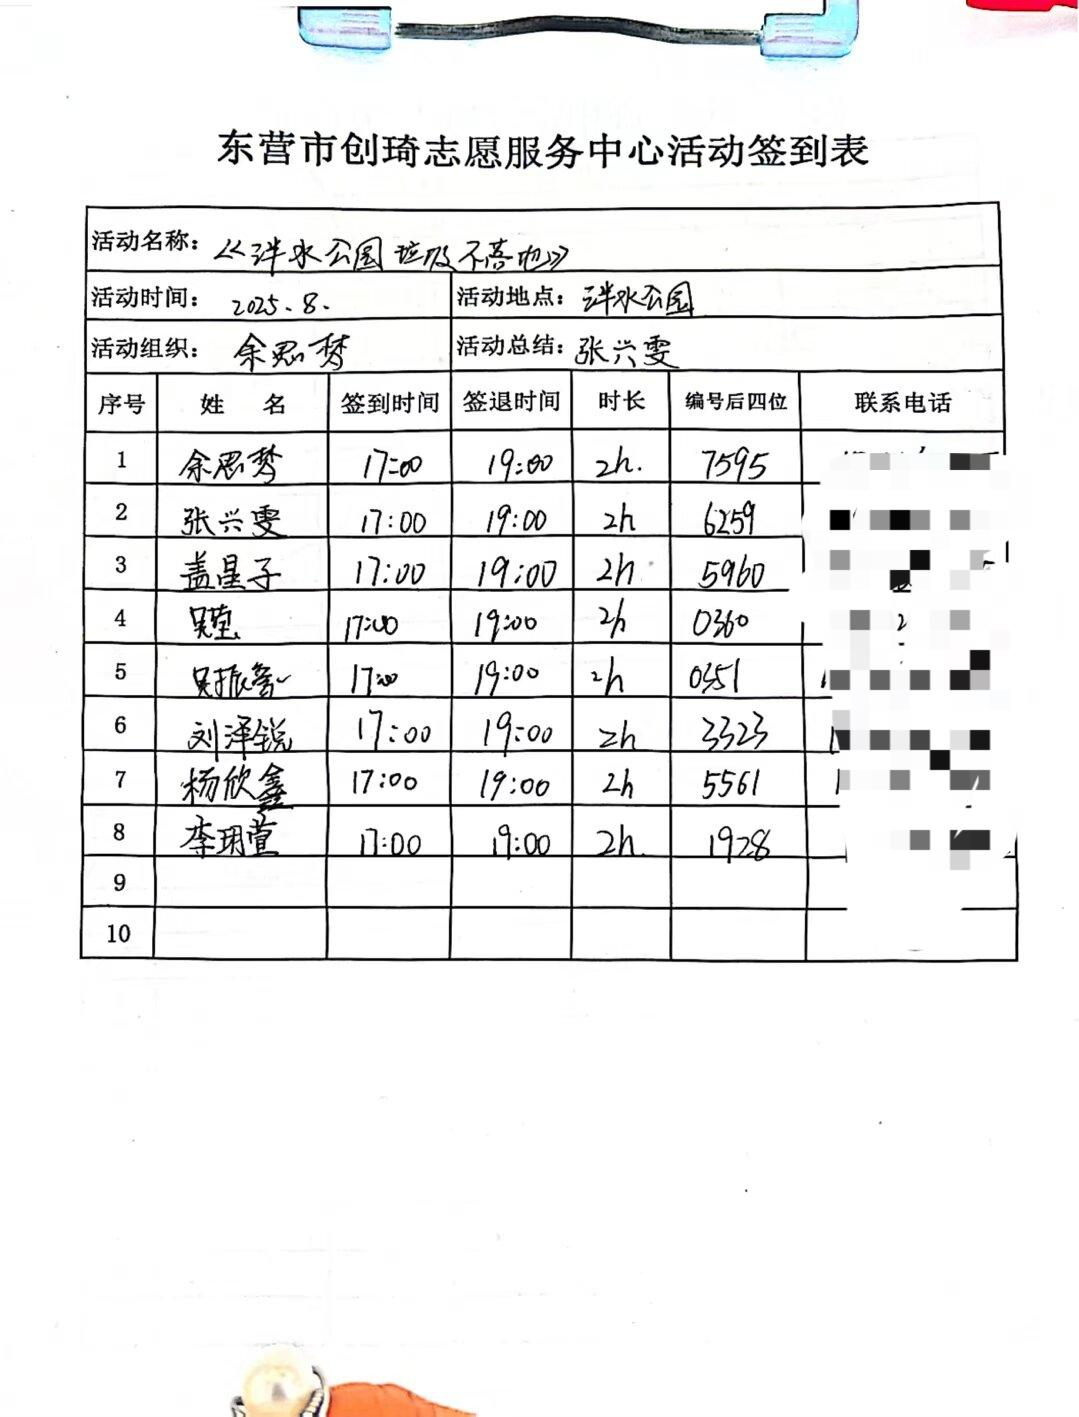 东营市创琦志愿服务中心活动签到表
活动名称：《泮水公园垃圾不落地》
活动时间：2025.8. 活动地点：泮水公园
活动组织：余思梦 活动总结：张兴雯
序号 姓名 签到时间 签退时间 时长 编号后四位 联系电话
1 余思梦 17:00 19:00 2h. 7595
2 张兴雯 17:00 19:00 2h 6259
3 盖星子 17:00 19:00 2h 5960
4 17:00 19:00 2h 0360
5 17:00 19:00 2h 0351
6 刘泽锐 17:00 19:00 2h 3323
7 杨欣鑫 17:00 19:00 2h 5561
8 李玥萱 17:00 19:00 2h. 1928
9
10